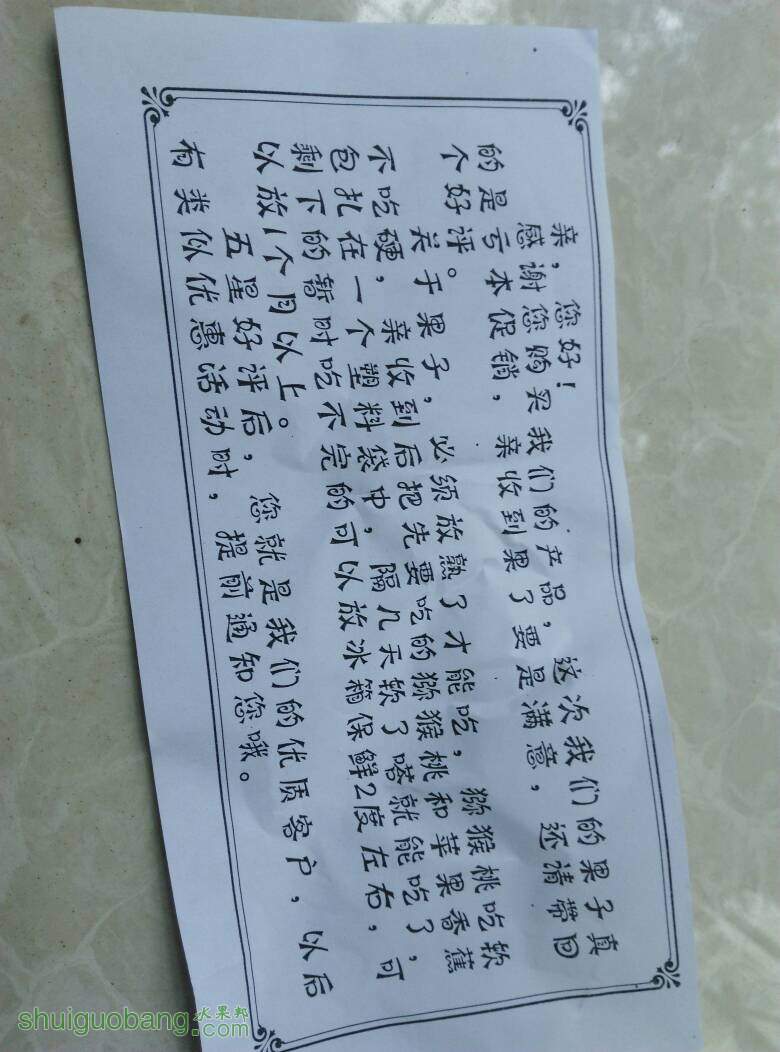 亲，您好！
感谢您购买我们的产品，这次我们的果子真
的是亏本促销，亲收到果了要是满意，还请带回
个好评。
关于果子，必须放熟了才能吃，猕猴桃吃软
不吃硬，亲收到后把先要吃的猕猴桃和苹果香蕉
包扎在一个塑料袋中，隔几天软了嗒就能吃了，
剩下的暂时吃不完的可以放冰箱保鲜2度左右，可
以放1个月以上。
五星好评后，您就是我们的优质客户，以后
有类似优惠活动时，提前通知您哦。
水果邦
shuiguobang.com